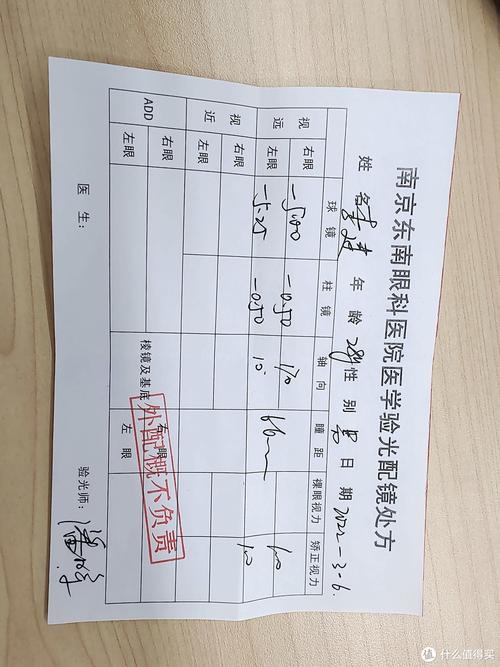 南京东南眼科医院医学验光配镜处方
姓名 李 年龄 28 性别 男 日期 2022-3-6.
球镜 柱镜 轴向 瞳距 裸眼视力 矫正视力
远视 右眼 -5.00 -0.50 170 1.0
左眼 -5.25 -0.50 10 66mm 1.0
近视 右眼
左眼
ADD 右眼 棱镜及基底 右眼
左眼 左眼
医生: 验光师:
外配概不负责
什么值得买